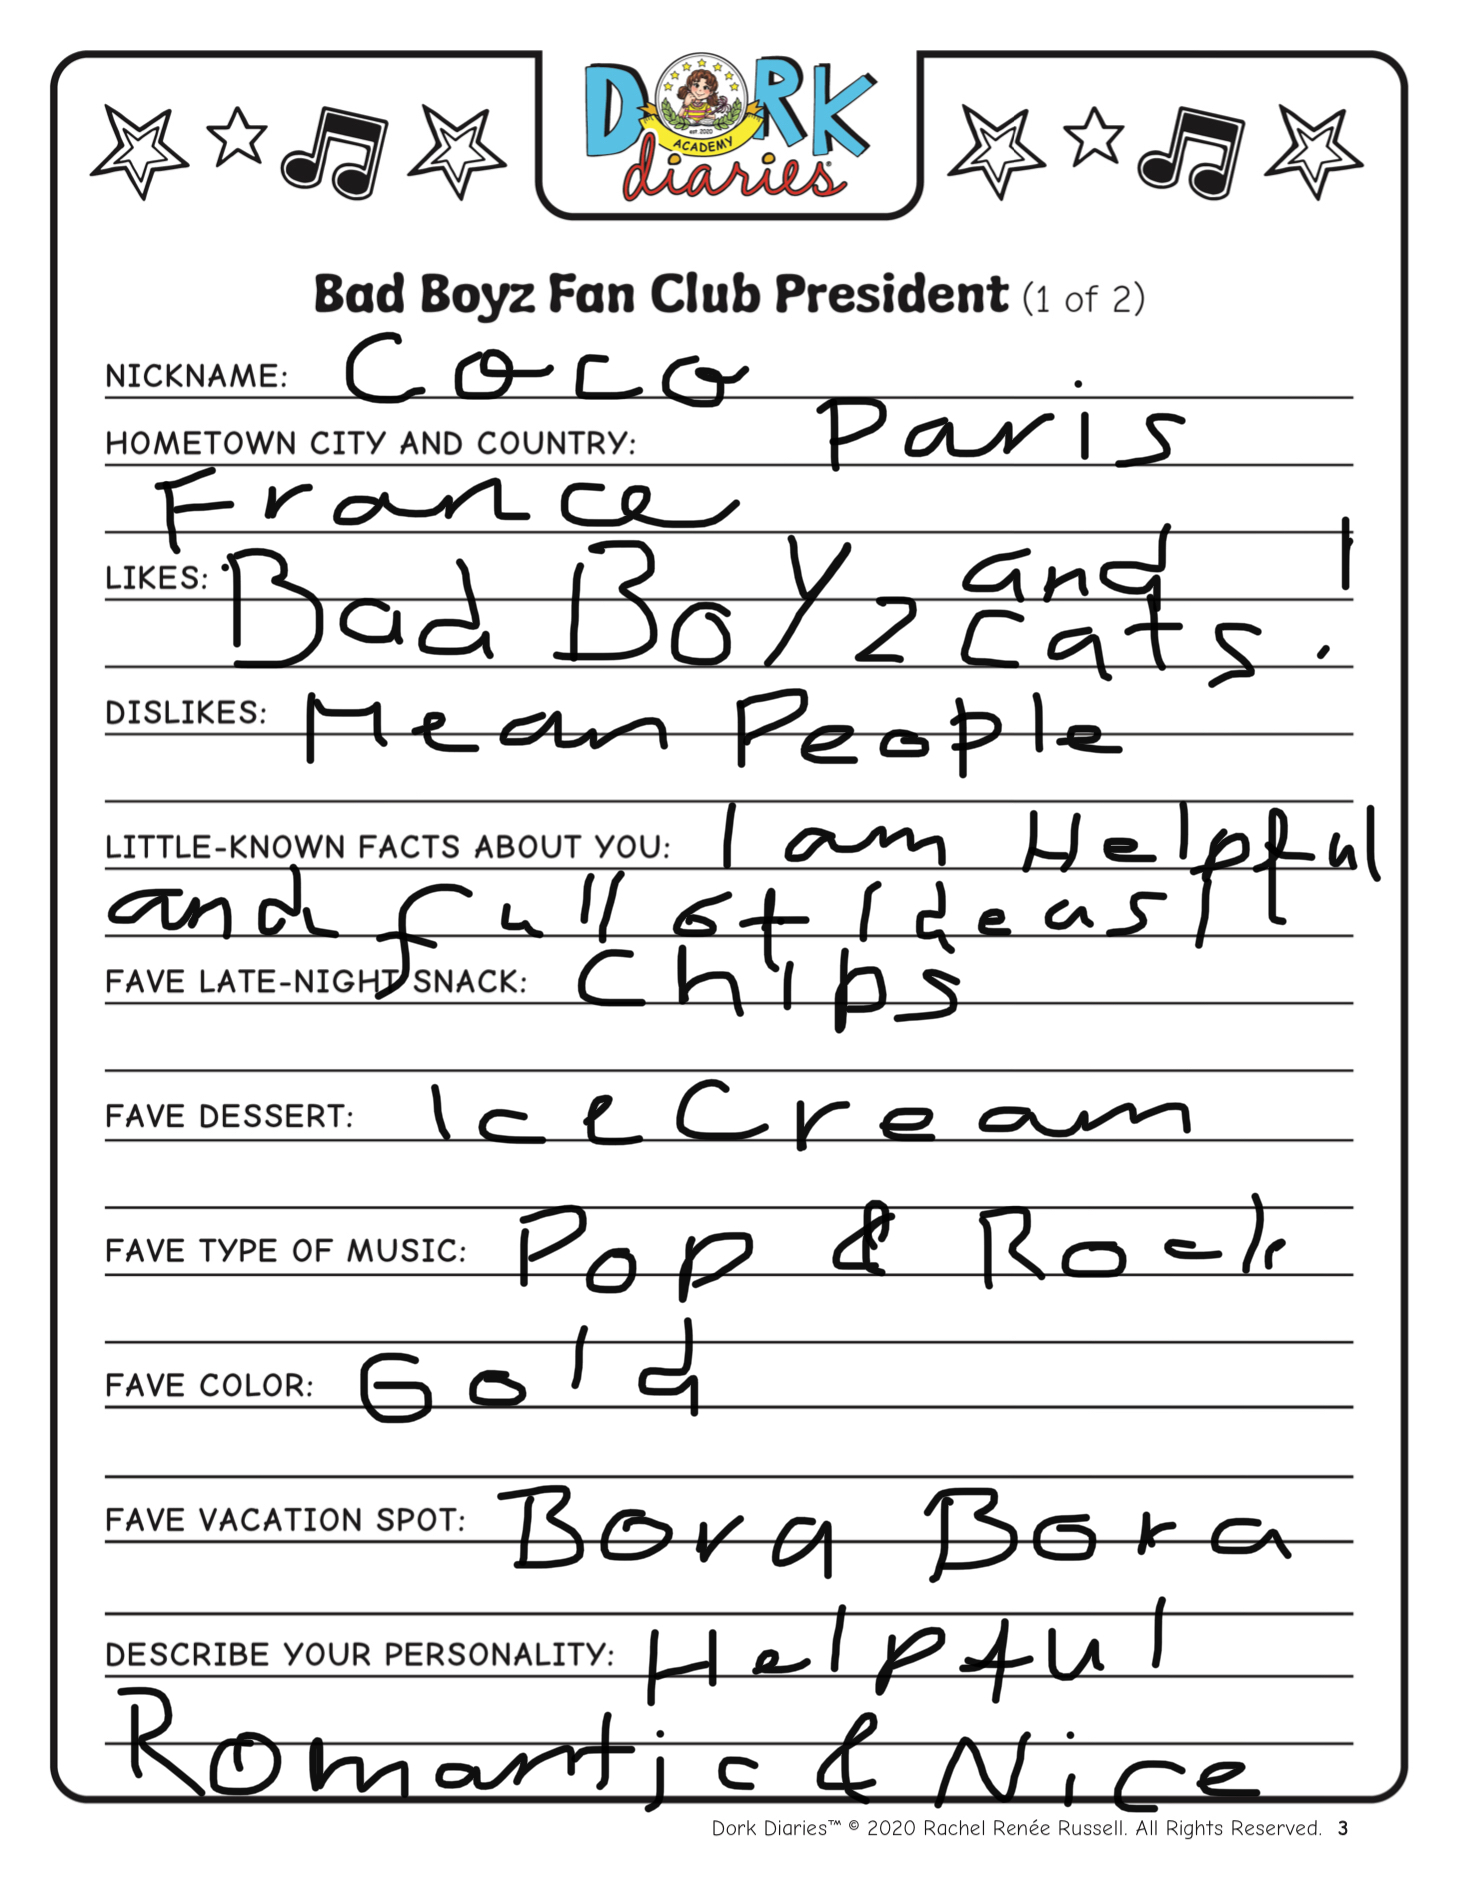 DORK
est. 2020
ACADEMY
diaries®
Bad Boyz Fan Club President (1 of 2)
NICKNAME: Coco
HOMETOWN CITY AND COUNTRY: Paris
France
LIKES: Bad Boyz and
cats!
DISLIKES: Mean People
LITTLE-KNOWN FACTS ABOUT YOU: I am Helpful
and full of Ideas!
FAVE LATE-NIGHT SNACK: Chips
FAVE DESSERT: Ice Cream
FAVE TYPE OF MUSIC: Pop & Rock
FAVE COLOR: Gold
FAVE VACATION SPOT: Bora Bora
DESCRIBE YOUR PERSONALITY: Helpful
Romantic & Nice
Dork Diaries™ © 2020 Rachel Renée Russell. All Rights Reserved. 3